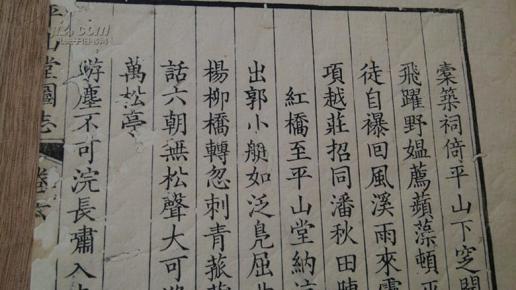 築祠倚平山下
飛躍野媼薦蘋藻頓平
徒自襮回風溪雨來
項越莊招同潘秋田陳
紅橋至平山堂納
出郭小艇如泛鳧屈
楊柳橋轉忽刺青菰
話六朝無松聲大可
萬松亭
遊塵不可浣長嘯入
平山堂圖志 卷六